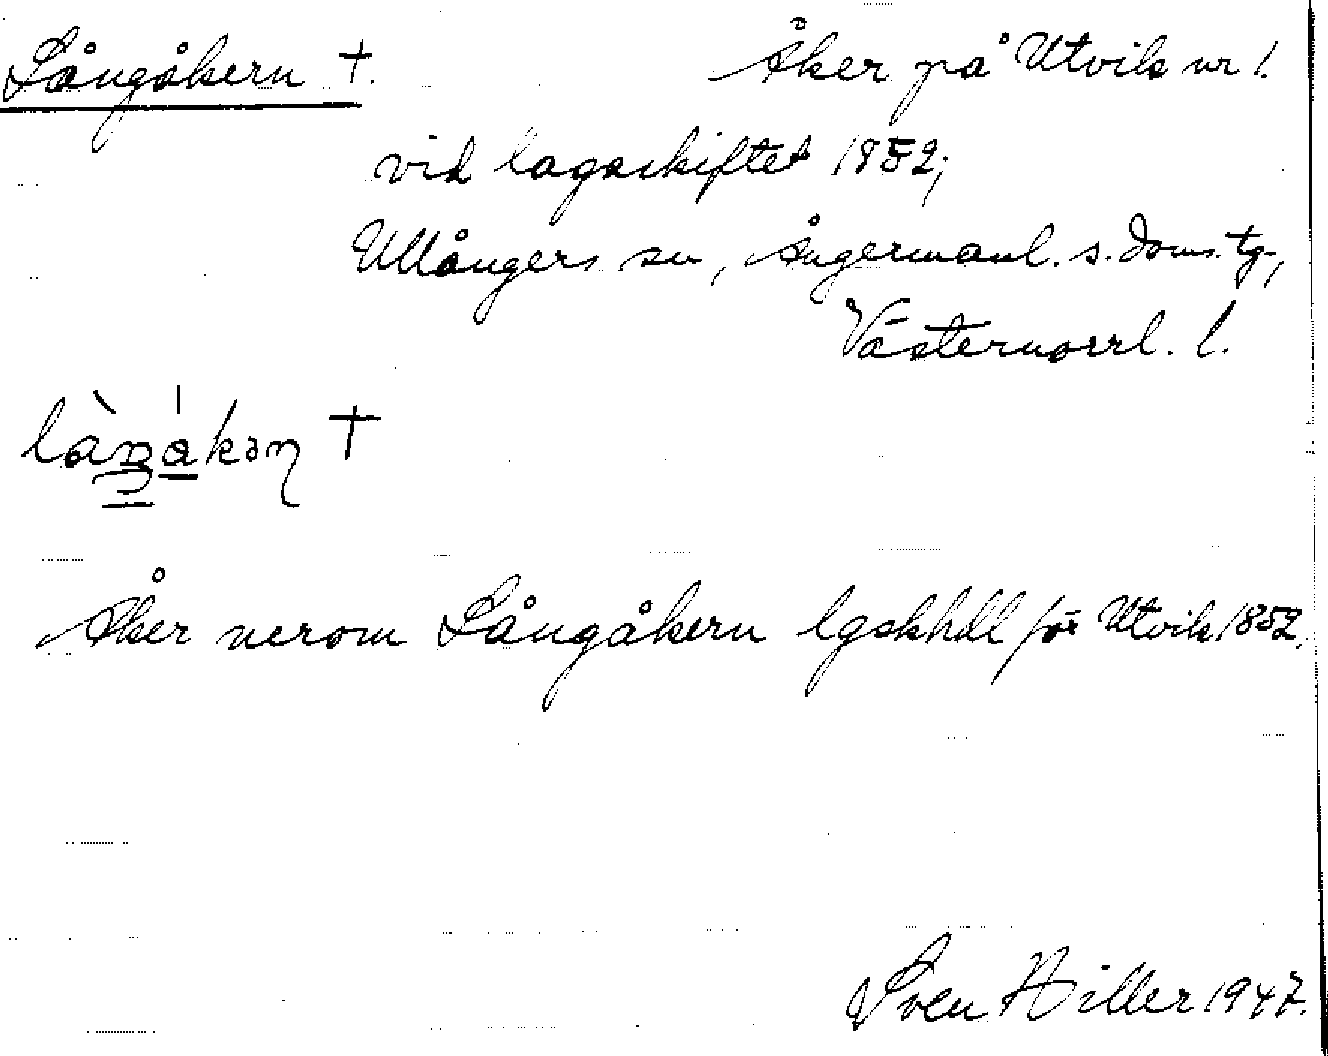 Långåkern †. Åker på Utvik nr 1.
vid lagaskiftet 1852;
Ullångers sn, Ångermanl. s. doms. tg.,
Västernorrl. l.
Åker nerom Långåkern lgskhdl för Utvik 1852.
Sven Hiller 1947.